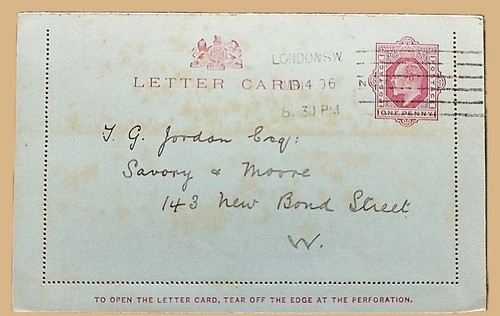 LONDON S.W.
LETTER CARD
6.30 PM
ONE PENNY
T. G. Jordan Esq:
Savory & Moore
143 New Bond Street
W.
TO OPEN THE LETTER CARD, TEAR OFF THE EDGE AT THE PERFORATION.